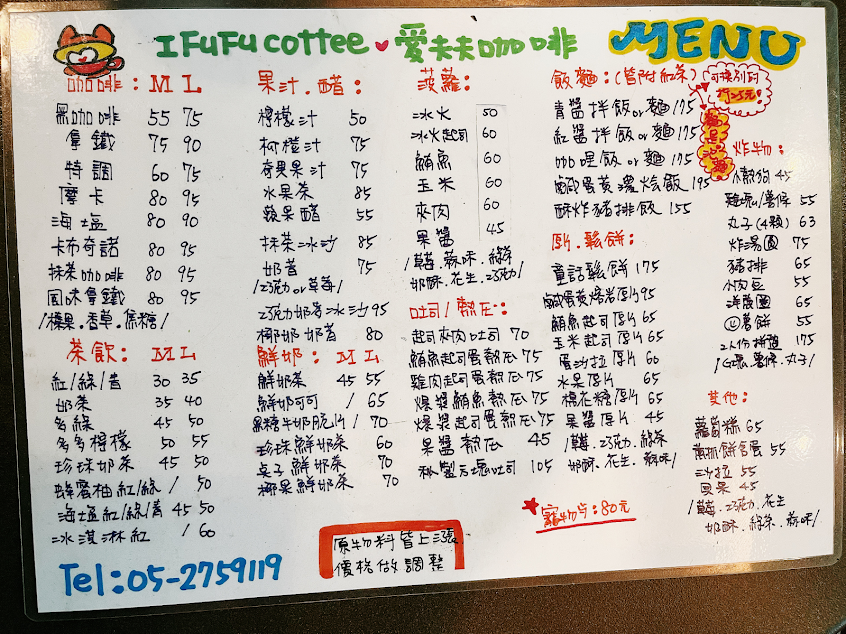 IFuFu cottee 愛夫夫咖啡 MENU
咖啡: M L
黑咖啡 55 75
拿鐵 75 90
特調 60 75
摩卡 80 95
海塩 80 90
卡布奇諾 80 95
抹茶咖啡 80 95
風味拿鐵 80 95
/榛果.香草.焦糖/
茶飲: M L
紅/綠/青 30 35
奶茶 35 40
多綠 45 50
多多檸檬 50 55
珍珠奶茶 45 50
蜂蜜柚紅/綠 / 50
海塩紅/綠/青 45 50
冰淇淋紅 / 60
果汁.醋:
檸檬汁 50
柯橙汁 75
奇異果汁 75
水果茶 85
蘋果醋 55
抹茶冰沙 85
奶昔 75
/巧克力or草莓/
巧克力奶昔冰沙 95
椰奶奶昔 80
鮮奶: M L
鮮奶茶 45 55
鮮奶可可 / 65
黑糖牛奶脆片 / 70
珍珠鮮奶茶 60
桌子鮮奶茶 70
椰果鮮奶茶 70
菠蘿:
冰火 50
冰火起司 60
鮪魚 60
玉米 60
夾肉 60
果醬 45
/草莓.蒜味.綠茶
奶酥.花生.巧克力/
吐司/熱压:
起司夾肉吐司 70
鮪魚起司蛋熱压 75
雞肉起司蛋熱压 75
爆漿鮪魚熱压 75
爆漿起司蛋熱压 75
果醬熱压 45
秘製吐司 105
飯麵:(皆附紅茶)
可換別的
折25元!
青醬拌飯or麵 175
紅醬拌飯or麵 175
咖哩飯or麵 175
鹹蛋黃燴飯 195
酥炸豬排飯 155
厚片.鬆餅:
童話鬆餅 175
鹹蛋黃熔岩厚片 95
鮪魚起司厚片 65
玉米起司厚片 65
蛋沙拉厚片 60
水果厚片 65
棉花糖厚片 65
果醬厚片 45
/草莓.巧克力.綠茶
奶酥.花生.蒜味/
★寵物与:80元
炸物:
小熱狗 45
雞塊/薯條 55
丸子(4顆) 63
炸湯圓 75
豬排 65
小肉豆 55
洋蔥圈 65
薯餅 55
2人份拼盤 175
/G塊.薯條.丸子/
其他:
蘿蔔糕 65
蔥抓餅含蛋 55
沙拉 55
貝果 45
/草莓.巧克力.花生
奶酥.綠茶.蒜味/
原物料皆上漲
價格做調整
Tel:05-2759119